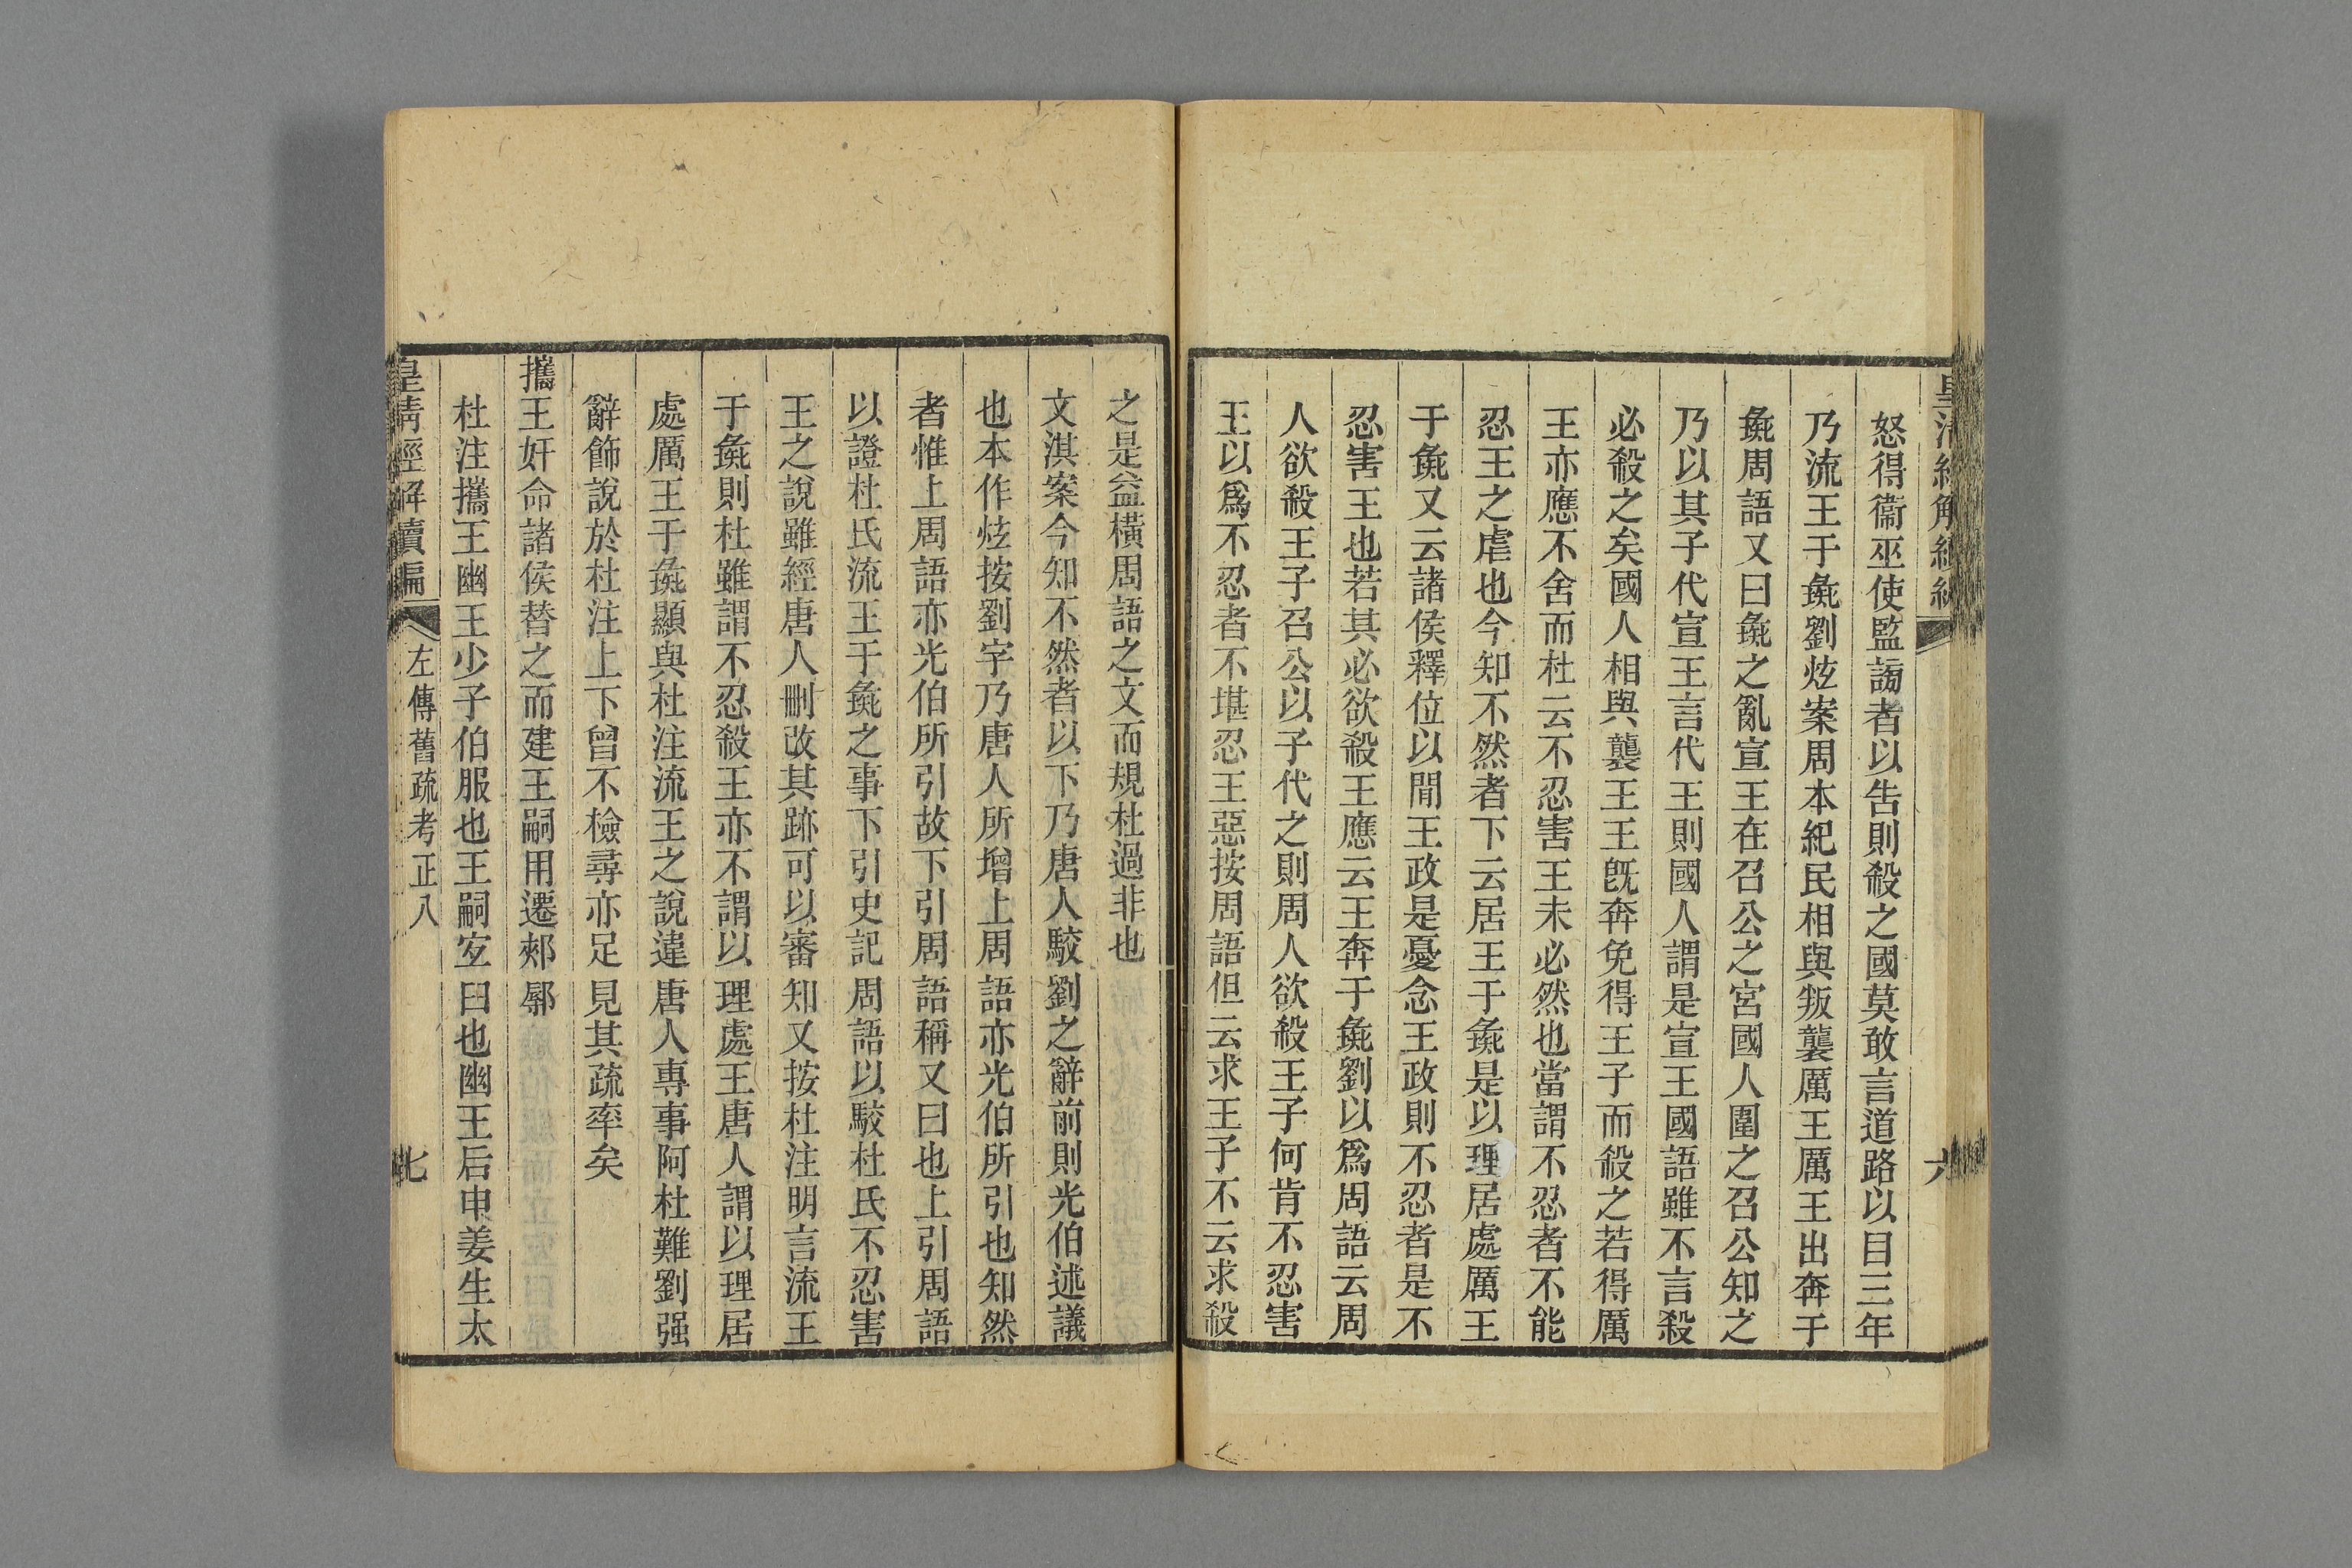 怒得衞巫使監謗者以告則殺之國莫敢言道路以目三年
乃流王于彘劉炫案周本紀民相與叛襲厲王厲王出奔于
彘周語又曰彘之亂宣王在召公之宮國人圍之召公知之
乃以其子代宣王言代王則國人謂是宣王國語雖不言殺
必殺之矣國人相與襲王王旣奔免得王子而殺之若得厲
王亦應不舍而杜云不忍害王未必然也當謂不忍者不能
忍王之虐也今知不然者下云居王于彘是以理居處厲王
于彘又云諸侯釋位以閒王政是憂念王政則不忍者是不
忍害王也若其必欲殺王應云王奔于彘劉以爲周語云周
人欲殺王子召公以子代之則周人欲殺王子何肯不忍害
王以爲不忍者不堪忍王惡按周語但云求王子不云求殺
之是益橫周語之文而規杜過非也
文淇案今知不然者以下乃唐人駮劉之辭前則光伯述議
也本作炫按劉字乃唐人所增上周語亦光伯所引也知然
者惟上周語亦光伯所引故下引周語稱又曰也上引周語
以證杜氏流王于彘之事下引史記周語以駮杜氏不忍害
王之說雖經唐人刪改其跡可以審知又按杜注明言流王
于彘則杜雖謂不忍殺王亦不謂以理處王唐人謂以理居
處厲王于彘顯與杜注流王之說違唐人專事阿杜難劉强
辭飾說於杜注上下曾不檢尋亦足見其疏率矣
攜王奸命諸侯替之而建王嗣用遷郟鄏
杜注攜王幽王少子伯服也王嗣宜臼也幽王后申姜生太
皇清經解續編
左傳舊疏考正八
七